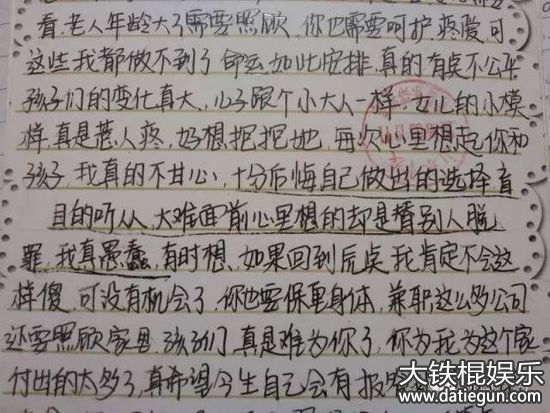 看.老人年龄大了需要照顾.你也需要呵护.疼爱.可
这些我都做不到了命运如此安排.真的有点不公平
孩子们的变化真大,儿子跟个小大人一样.女儿的小模
样.真是惹人疼.好想抱抱她,每次心里想起你和
孩子,我真的不甘心,十分后悔自己做出的选择盲
目的听从.大难面前心里想的却是替别人脱
罪.我真愚蠢,有时想.如果回到原点.我肯定不会这
样傻.可没有机会了,你也要保重身体,兼职这么多公司
还要照顾家里.孩子们.真是难为你了,你为我.为这个家
付出的太多了,真希望今生自己会有报
大铁棍娱乐
www.datiegun.com